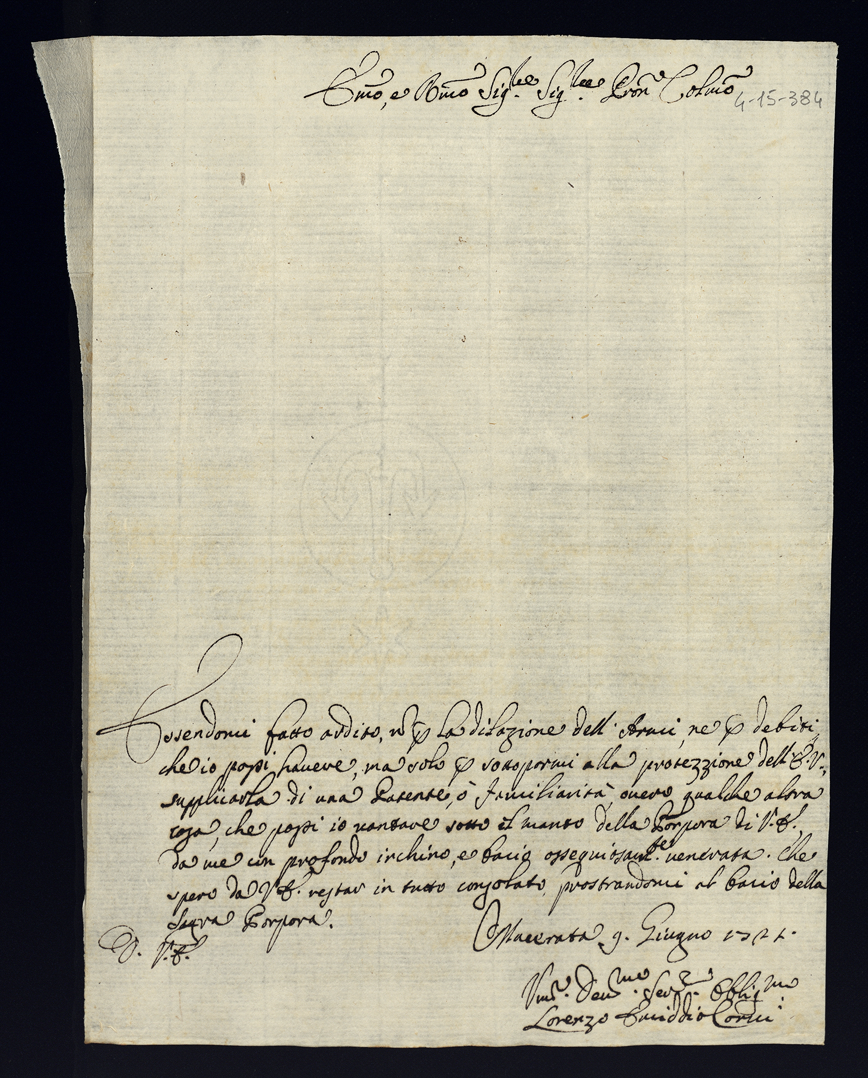 Emo, e Rmo Sig.re Sig.re Pron Colmo
4-15-384
Essendomi fatto ardito, nō p la dilazione dell'Armi, ne p debiti,
che io possi havere, ma solo p sottopormi alla protezzione dell'E.V.,
supplicarla di una Patente, ò familiarità, overo qualche altra
cosa, che possi io vantare sotto il manto della Porpora di V.E.
da me con profondo inchino, e bacio ossequiosam.te venerata. Che
spero da V.E. restar in tutto consolato, prostrandomi al bacio della
Sagra Porpora.
Macerata 9. Giugno 1721.
D. V.E.
Vmo. Devmo. Ser.e Obligmo
Lorenzo